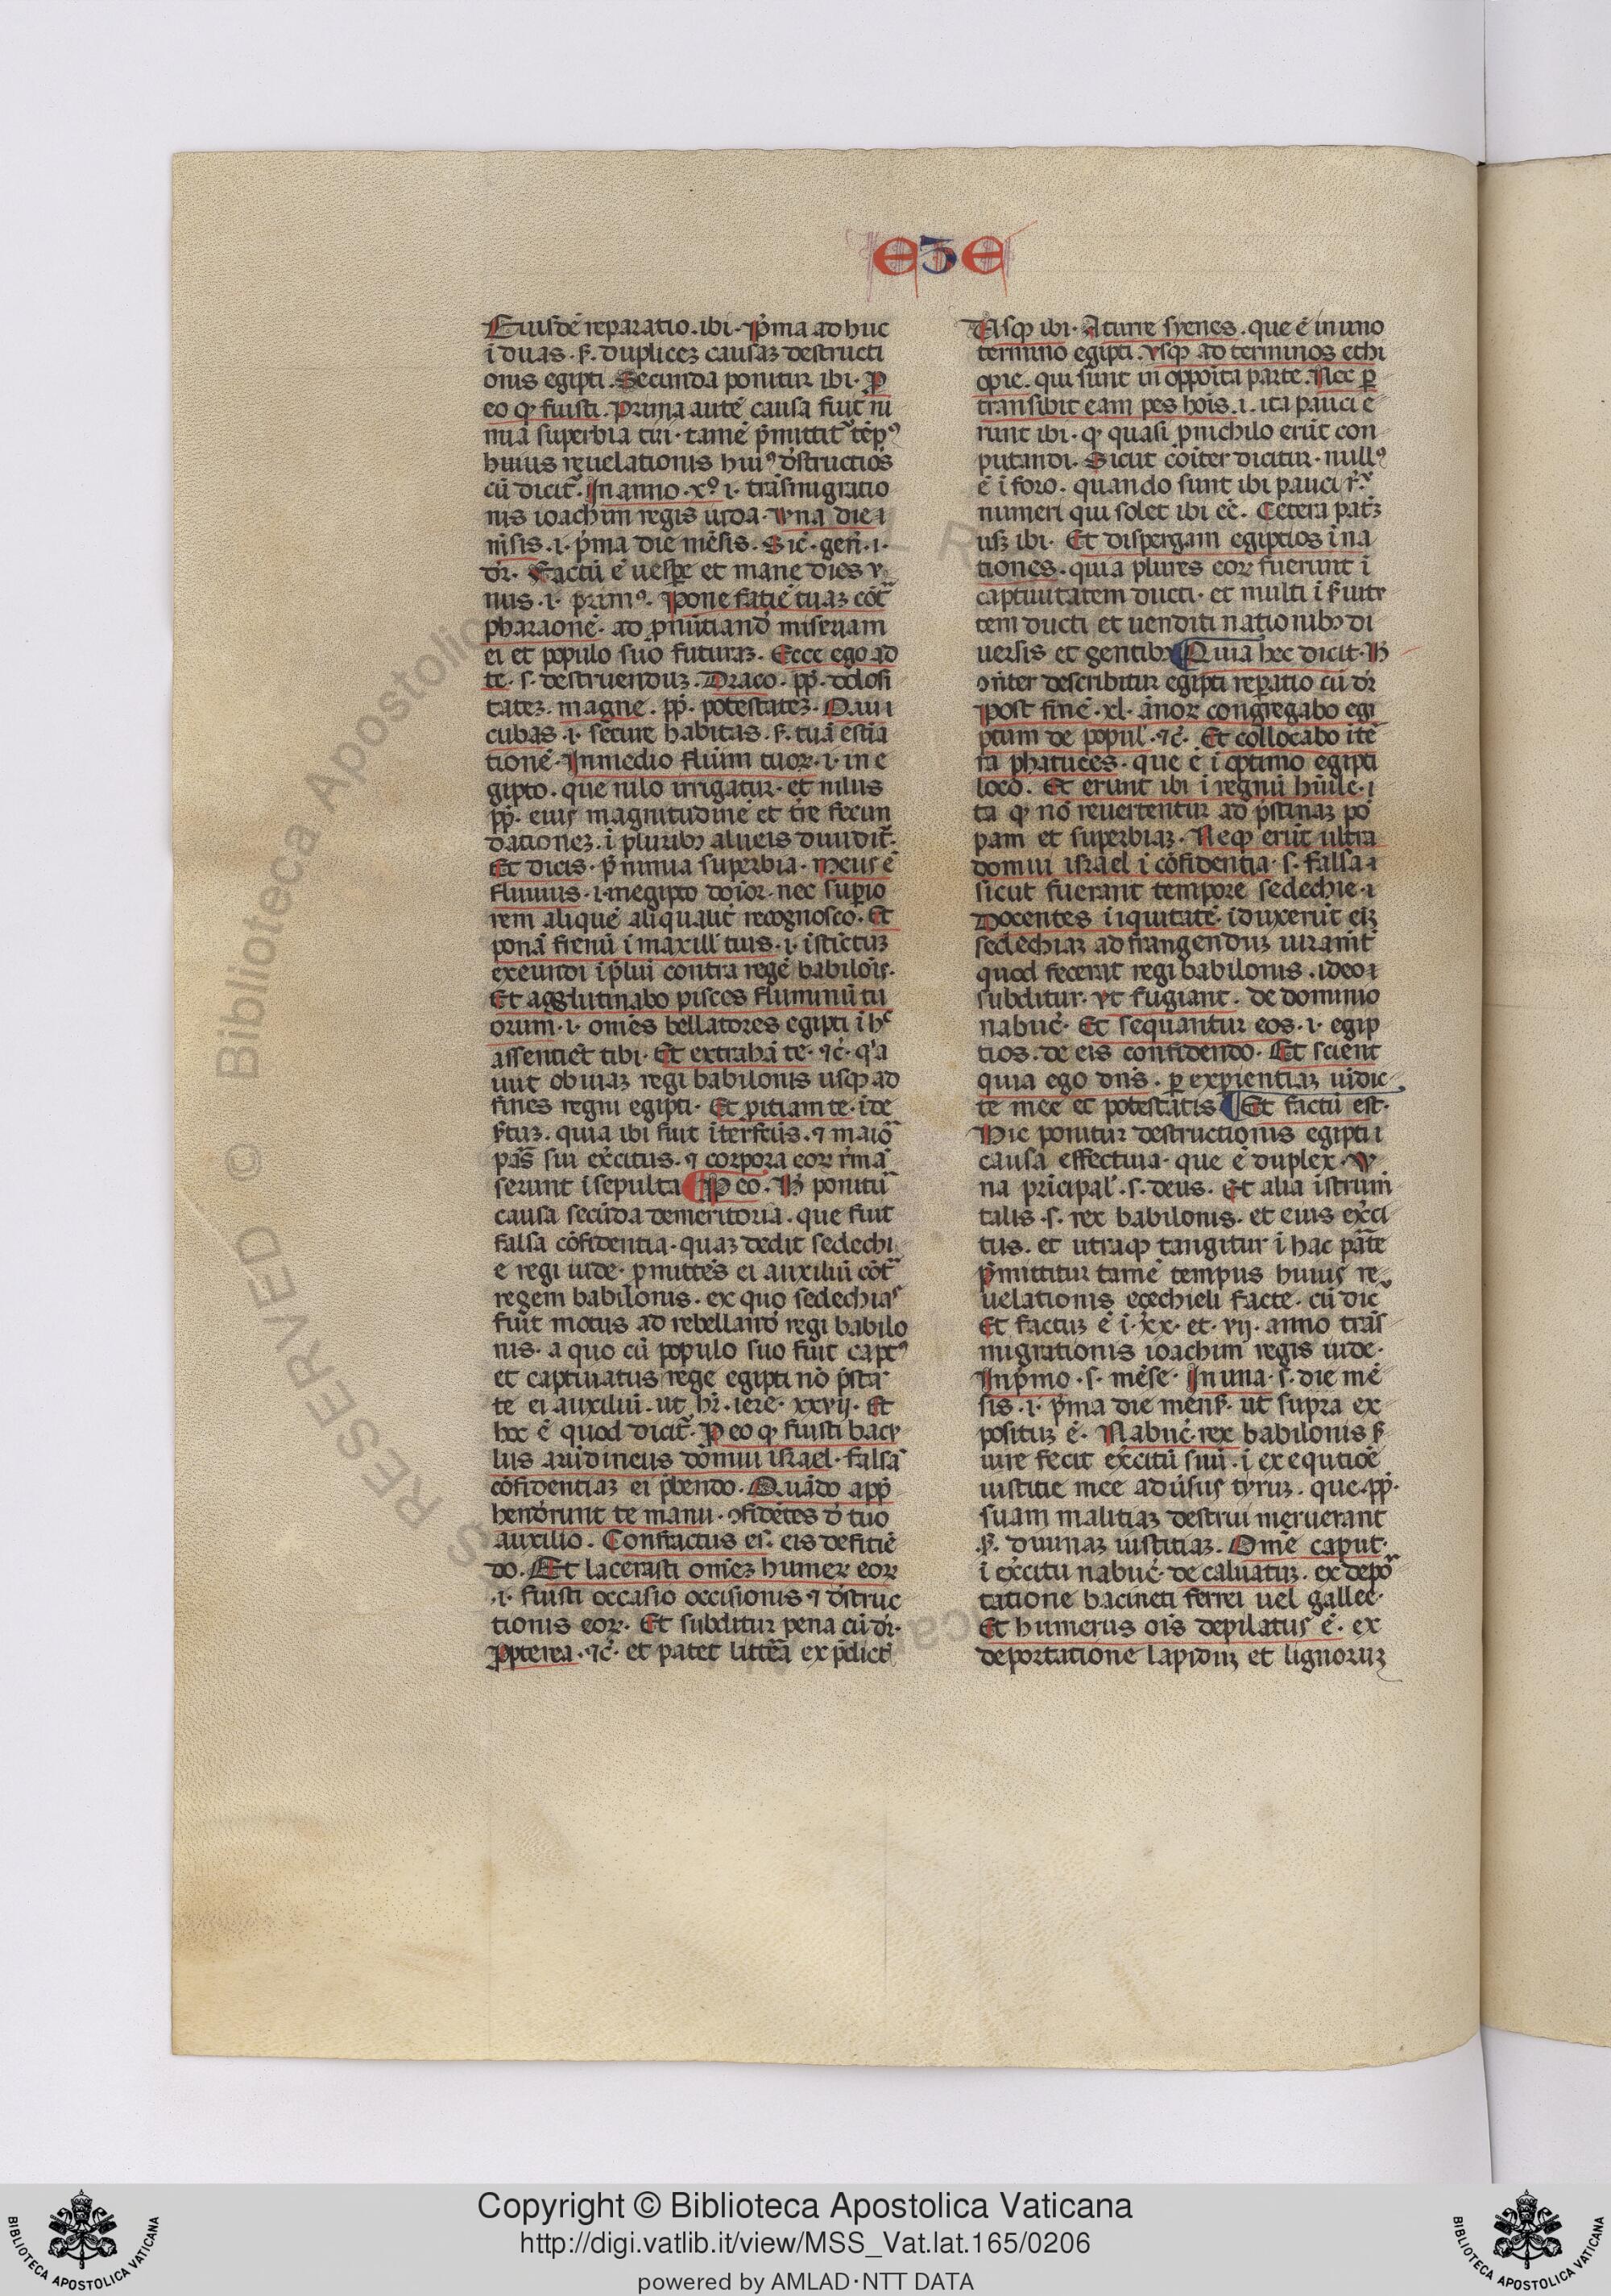 EZE
Eiusdē reparatio. ibi. Pͥma adhuc
ī duas. ẜ. dupliceꝫ causaꝫ destructi
onis egipti. Secunda ponitur ibi. ꝓ
eo ꝙ fuisti. Prima autē causa fuit ni
mia superbia
huius reuelationis huiꝰ
cū dicit̄. In anno .xº.i. trāsmigratio
nis ioachim regis iuda. vna die
.i. pͥma die mēsis. Sic̄. gen̄.i.
dr̄. Factū ē uesꝑe et mane dies v
nus .i. primꝰ. Pone fatiē tuaꝫ cōt̄
pharaonē. ad ꝓnūtiandū miseriam
ei et populo suo futuraꝫ. Ecce ego ad
te. s. destruenduꝫ. Draco. ꝓꝑ. dolosi
tateꝫ. magne. ꝓꝑ. potestateꝫ. Qui
cubas .i. secure habitas. ẜ. tuā estīa
tionē. In medio fluīm tuoꝝ .i. in e
gipto. que nilo irrigatur. et nilus
ꝓꝑ. eius magnitudinē et tr̄e fecun
dationeꝫ. ī pluribꝫ alueis diuidit̄.
Et dicis. p̄ nimia superbia. Meus ē
fluuius .i. in egipto dōior. nec suꝑio
rem aliquē aliqualit̄ recognosco. Et
ponā frenū ī maxill̄ tuis .i.
exeundi ī p̄liū contra regē babilōis.
Et agglutinabo pisces fluminū tu
orum .i. omēs bellatores egipti ī hͦ
assentiēt tibi. Et extrahā te. ⁊c̄. qͥa
iuit obuiaꝫ regi babilonis usqꝫ ad
fines regni egipti. Et ꝓitiam te. ī de
ẜtuꝫ. quia ibi fuit īterfc̄us. ⁊ maioͬ
pās sui ex̄citus. ⁊ corpora eoꝝ r̄mā
serunt īsepulta ¶ ꝓ eo. Hͦ ponitū
causa secūda demeritoria. que fuit
falsa cōfidentia. quaꝫ dedit sedechi
e regi iude. ꝓmittēs ei auxiliū cōt̄
regem babilonis. ex quo sedechias
fuit motus ad rebellandū regi babilo
nis. a quo cū populo suo fuit captꝰ
et captiuatus rege egipti nō p̄stā
te ei auxiliū. ut hr̄. iere. xxvij. Et
hoc ē quod dicit̄. ꝓ eo ꝙ fuisti bacu
lus arūdineus domui isrͣael. falsā
cōfidentiaꝫ ei p̄bendo. Quādo app̄
henderunt te manu. ꝯfidētes dͤ tuo
auxilio. Confractus es. eis defitiē
do. Et lacerasti omēꝫ humeꝝ eoꝝ
.i. fuisti occasio occisionis ⁊ dͤstruc
tionis eoꝝ. Et subditur pena cū dr̄.
ꝓpterea. ⁊c̄. et patet littera ex p̄dict̄
Usqꝫ ibi. A turre syenes. que ē in uno
termino egipti. vsqꝫ ad terminos ethi
opie. qui sunt in opposita parte. Nec ꝑ
transibit eam pes hoīs .i. ita pauci e
runt ibi. ꝙ quasi ꝓ nichilo erūt con
putandi. Sicut cōiter dicitur. nullꝰ
ē ī foro. quando sunt ibi pauci
numeri qui solet ibi eē. Cetera patꝫ
usꝫ ibi. Et dispergam egiptios ī na
tiones. quia plures eoꝝ fuerunt ī
captiuitatem ducti. et multi ī ẜuitu
tem ducti et uenditi nationibꝫ di
uersis et gentibꝫ ¶ Quia hec dicit. Hͦ
ꝯn̄ter describitur egipti reꝑatio cū dr̄
Post finē .xl. ānoꝝ congregabo egi
ptum de popul̄. ⁊c̄. Et collocabo ī tē
ra phatures. que ē ī optimo egipti
loco. Et erunt ibi ī regnū hūile. i
ta ꝙ nō reuertentur ad pͥstinaꝫ pō
pam et superbiaꝫ. Neqꝫ erūt ultra
domui isrͣael ī cōfidentia. s. falsa.
sicut fuerant tempore sedechie.
Docentes īiquitatē. īduxerūt eī
sedechiaꝫ ad frangenduꝫ iuramt̄
quod fecerat regi babilonis. ideo
subditur. vt fugiant. de dominio
nabuc̄. Et sequantur eos .i. egip
tios. de eis confidendo. Et scient
quia ego dn̄s. ꝑ exꝑientiaꝫ uīdic
te mee et potestatis ¶ Et factū est.
Hic ponitur destructionis egipti
causa effectiua. que ē duplex. v
na prīcipal̄. s. deus. Et alia īstrum̄
talis. s. rex babilonis. et eius ex̄ci
tus. et utraqꝫ tangitur ī hac pāte
p̄mittitur tamē tempus huius re
uelationis ezechieli facte. cū dic̄
Et factuꝫ ē ī .xx. et .vij. anno trās
migrationis ioachim regis iude.
In pͥmo. s. mēse. In una. s. die mē
sis .i. pͥma die mens̄. ut supra ex
posituꝫ ē. Nabuc̄. rex babilonis ẜ
uire fecit ex̄citū suū. ī exequtiōē
iustitie mee adūsus tyruꝫ. que ꝓꝑ.
suam malitiaꝫ destrui meruerant
.ẜ. diuinaꝫ iustitiaꝫ. Omē caput.
ī ex̄citu nabuc̄. decaluatuꝫ. ex depoͬ
tatione bacineti ferrei uel gallee.
Et humerus oīs depilatus ē. ex
deportatione lapiduꝫ et lignoruꝫ
Copyright © Biblioteca Apostolica Vaticana
http://digi.vatlib.it/view/MSS_Vat.lat.165/0206
powered by AMLAD·NTT DATA